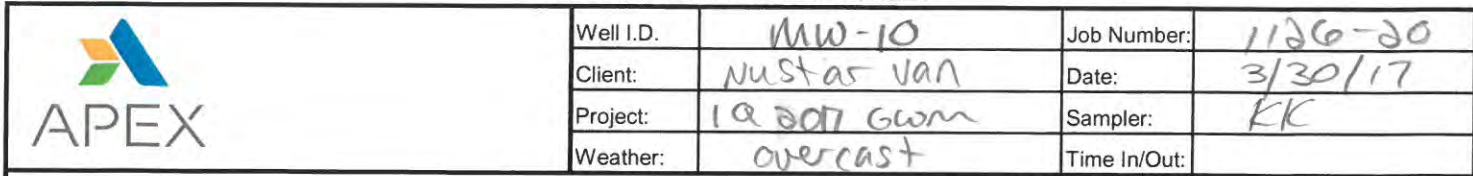 Well I.D. MW-10 Job Number: 1126-20
Client: Nustar Van Date: 3/30/17
APEX
Project: 1Q 2017 GWM Sampler: KK
Weather: overcast Time In/Out: